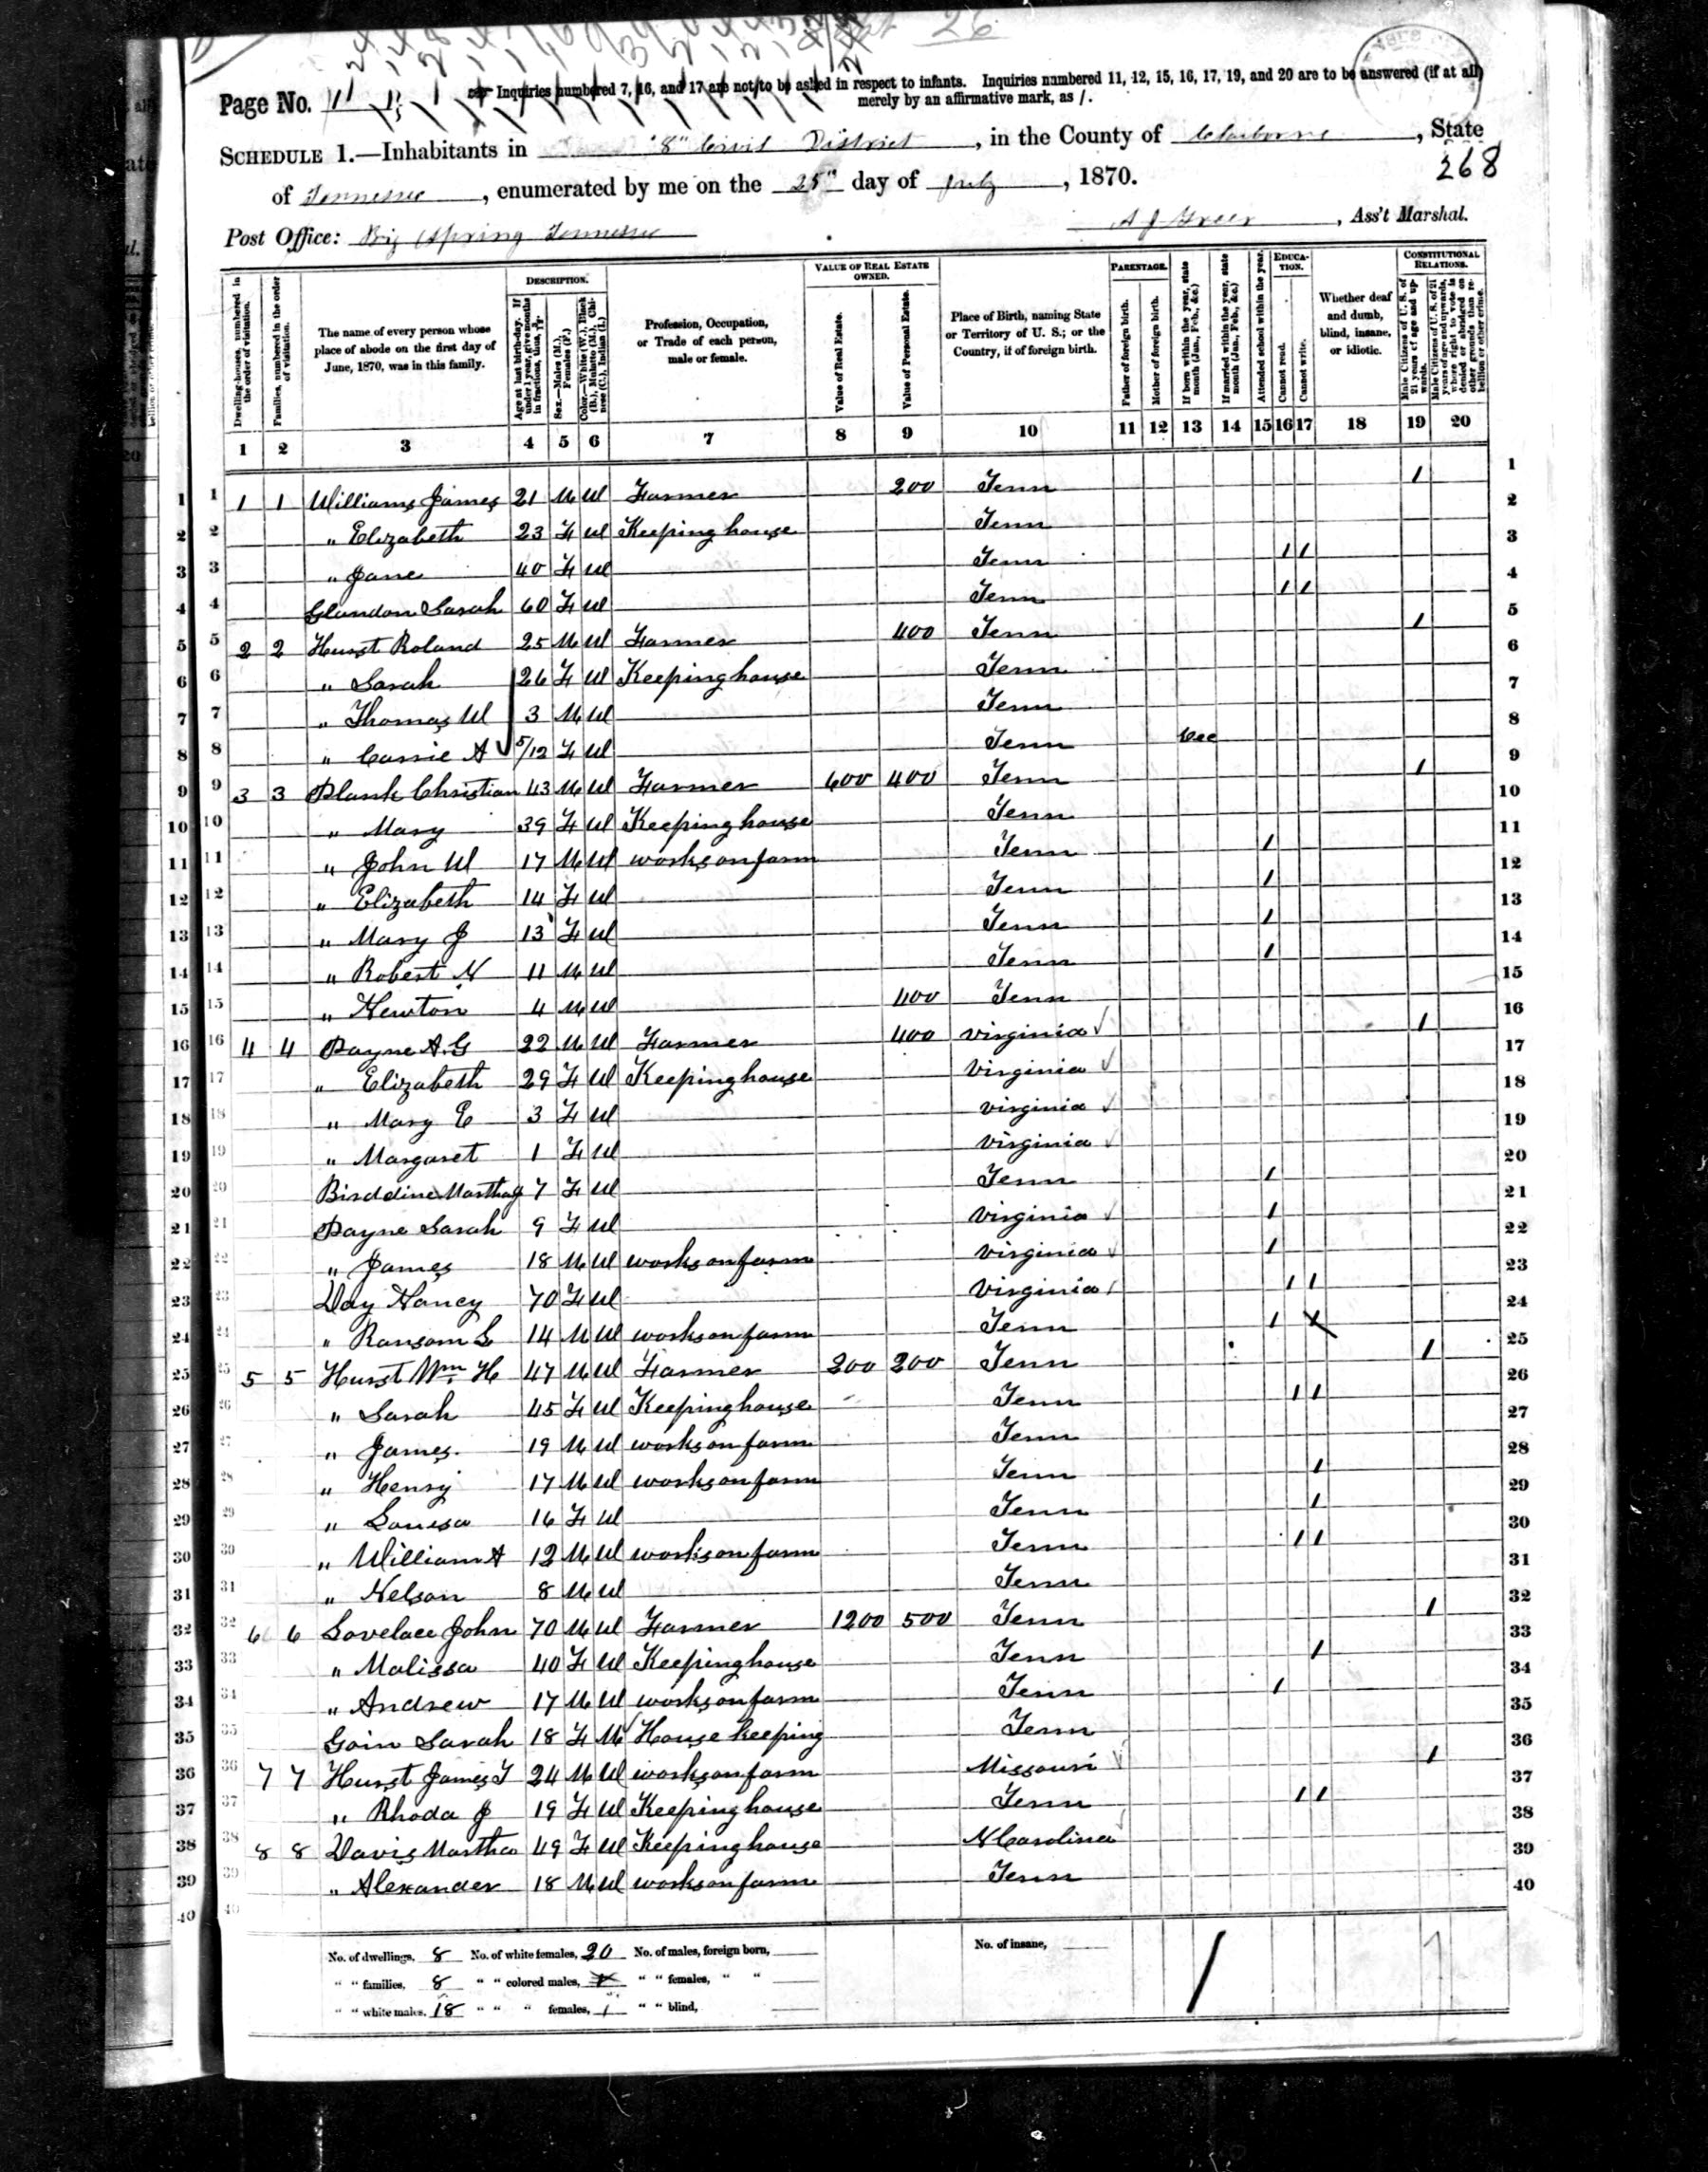 Page No. 11
Inquiries numbered 7, 16, and 17 are not to be asked in respect to infants. Inquiries numbered 11, 12, 15, 16, 17, 19, and 20 are to be answered (if at all)
merely by an affirmative mark, as /.
SCHEDULE 1.—Inhabitants in "8" Civil District, in the County of Claiborne, State
268
of Tennessee, enumerated by me on the 25" day of July, 1870.
Post Office: Big Spring Tennessee A J Greer, Ass't Marshal.
Dwelling-houses, numbered in the order of visitation.
Families, numbered in the order of visitation.
The name of every person whose place of abode on the first day of June, 1870, was in this family.
DESCRIPTION.
Age at last birth-day. If under 1 year, give months in fractions, thus, 3/12.
Sex.—Males (M.), Females (F.)
Color.—White (W.), Black (B.), Mulatto (M.), Chinese (C.), Indian (I.)
Profession, Occupation, or Trade of each person, male or female.
VALUE OF REAL ESTATE OWNED.
Value of Real Estate.
Value of Personal Estate.
Place of Birth, naming State or Territory of U. S.; or the Country, if of foreign birth.
PARENTAGE.
Father of foreign birth.
Mother of foreign birth.
If born within the year, state month (Jan., Feb., &c.)
If married within the year, state month (Jan., Feb., &c.)
Attended school within the year.
EDUCATION.
Cannot read.
Cannot write.
Whether deaf and dumb, blind, insane, or idiotic.
CONSTITUTIONAL RELATIONS.
Male Citizens of U. S. of 21 years of age and upwards.
Male Citizens of U. S. of 21 years of age and upwards, where right to vote is denied or abridged on other grounds than rebellion or other crime.
1 2 3 4 5 6 7 8 9 10 11 12 13 14 15 16 17 18 19 20
1 1 1 Williams James 21 M W Farmer 200 Tenn / 1
2 " Elizabeth 23 F W Keeping house Tenn 2
3 " Jane 40 F W Tenn / / 3
4 Glandon Sarah 60 F W Tenn / / 4
5 2 2 Hurst Roland 25 M W Farmer 400 Tenn / 5
6 " Sarah 26 F W Keeping house Tenn 6
7 " Thomas W 3 M W Tenn 7
8 " Cassie A 5/12 F W Tenn Dec 8
9 3 3 Plank Christian 43 M W Farmer 600 400 Tenn / 9
10 " Mary 39 F W Keeping house Tenn 10
11 " John W 17 M W works on farm Tenn / 11
12 " Elizabeth 14 F W Tenn / 12
13 " Mary J 13 F W Tenn / 13
14 " Robert N 11 M W Tenn / 14
15 " Newton 4 M W 400 Tenn 15
16 4 4 Payne A. G 22 M W Farmer 400 Virginia / 16
17 " Elizabeth 29 F W Keeping house Virginia 17
18 " Mary E 3 F W Virginia 18
19 " Margaret 1 F W Virginia 19
20 Birddine Martha J 7 F W Tenn / 20
21 Payne Sarah 9 F W Virginia / 21
22 " James 18 M W works on farm Virginia / 22
23 Day Nancy 70 F W Virginia / / 23
24 " Ransom L 14 M W works on farm Tenn / 24
25 5 5 Hurst Wm H 47 M W Farmer 200 200 Tenn / 25
26 " Sarah 45 F W Keeping house Tenn / / 26
27 " James 19 M W works on farm Tenn 27
28 " Henry 17 M W works on farm Tenn / 28
29 " Louisa 16 F W Tenn / 29
30 " William A 12 M W works on farm Tenn / / 30
31 " Nelson 8 M W Tenn 31
32 6 6 Lovelace John 70 M W Farmer 1200 500 Tenn / 32
33 " Malissa 40 F W Keeping house Tenn / 33
34 " Andrew 17 M W works on farm Tenn / 34
35 Goin Sarah 18 F M House keeping Tenn 35
36 7 7 Hurst James T 24 M W works on farm Missouri / 36
37 " Rhoda J 19 F W Keeping house Tenn / / 37
38 8 8 Davis Martha 49 F W Keeping house N Carolina 38
39 " Alexander 18 M W works on farm Tenn 39
40 40
No. of dwellings, 8 No. of white females, 20 No. of males, foreign born, No. of insane,
" " families, 8 " " colored males, " " females, " "
" " white males, 18 " " " females, 1 " " blind,